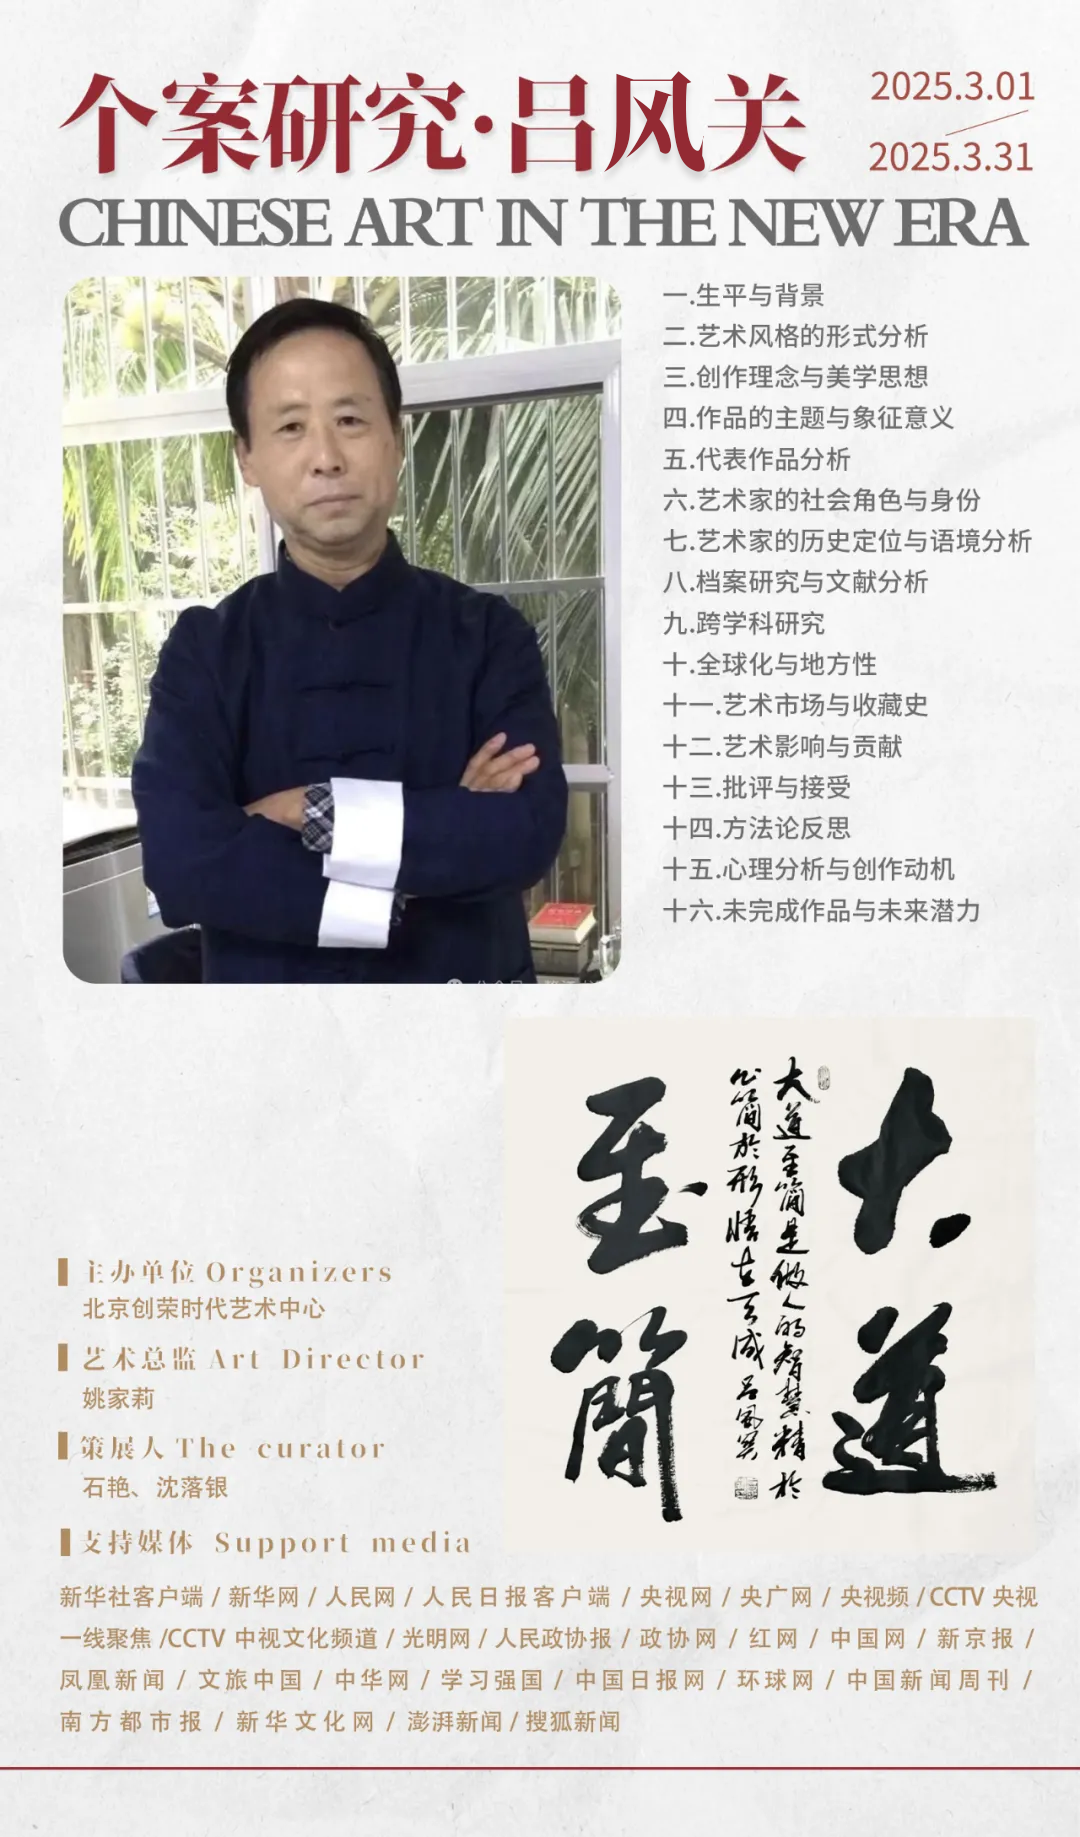 个案研究·吕风关
2025.3.01
2025.3.31
CHINESE ART IN THE NEW ERA
一.生平与背景
二.艺术风格的形式分析
三.创作理念与美学思想
四.作品的主题与象征意义
五.代表作品分析
六.艺术家的社会角色与身份
七.艺术家的历史定位与语境分析
八.档案研究与文献分析
九.跨学科研究
十.全球化与地方性
十一.艺术市场与收藏史
十二.艺术影响与贡献
十三.批评与接受
十四.方法论反思
十五.心理分析与创作动机
十六.未完成作品与未来潜力
大道
大道至簡是做人的智慧精於
簡於形悟在天成吕風関
至簡
主办单位 Organizers
北京创荣时代艺术中心
艺术总监 Art Director
姚家莉
策展人 The curator
石艳、沈落银
支持媒体 Support media
新华社客户端 / 新华网 / 人民网 / 人民日报客户端 / 央视网 / 央广网 / 央视频 / CCTV 央视
一线聚焦 /CCTV 中视文化频道 / 光明网 / 人民政协报 / 政协网 / 红网 / 中国网 / 新京报 /
凤凰新闻 / 文旅中国 / 中华网 / 学习强国 / 中国日报网 / 环球网 / 中国新闻周刊 /
南方都市报 / 新华文化网 / 澎湃新闻 / 搜狐新闻